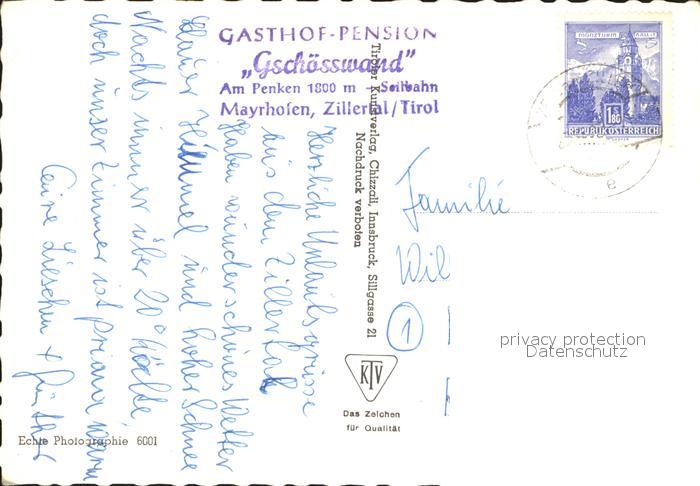 GASTHOF-PENSION
„Gschösswand”
Am Penken 1800 m - Seilbahn
Mayrhofen, Zillertal/Tirol
MÜNZTURM HALL I.T.
S 1.80
REPUBLIK ÖSTERREICH
Herzliche Urlaubsgrüsse
aus dem Zillertal
Haben wunderschönes Wetter
blauer Himmel und hoher Schnee
Nachts immer über 20° Kälte
doch unser Zimmer ist prima warm
Eure Lieschen + Günther
Tiroler Kunstverlag, Chizzali, Innsbruck, Sillgasse 21
Nachdruck verboten
Familie
Wil
1
privacy protection
Datenschutz
KTV
Das Zeichen
für Qualität
Echte Photographie 6001